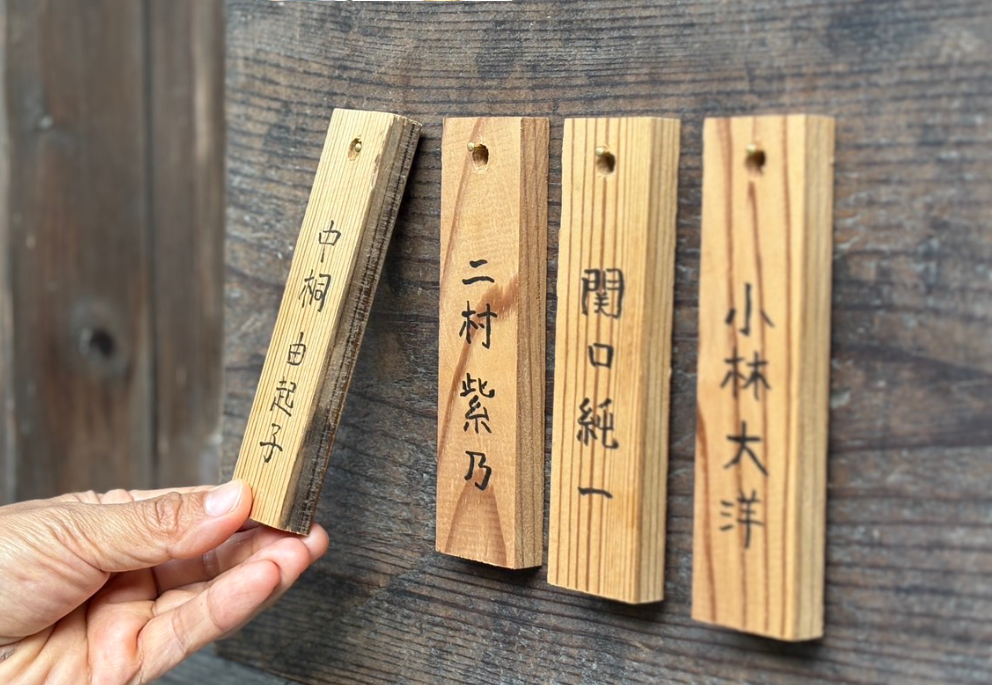 小林大洋
関口純一
二村紫乃
中桐由起子